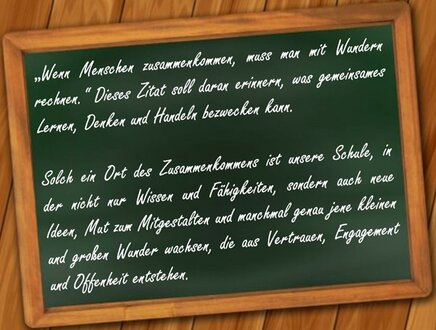 „Wenn Menschen zusammenkommen, muss man mit Wundern
rechnen.“ Dieses Zitat soll daran erinnern, was gemeinsames
Lernen, Denken und Handeln bezwecken kann.
Solch ein Ort des Zusammenkommens ist unsere Schule, in
der nicht nur Wissen und Fähigkeiten, sondern auch neue
Ideen, Mut zum Mitgestalten und manchmal genau jene kleinen
und großen Wunder wachsen, die aus Vertrauen, Engagement
und Offenheit entstehen.